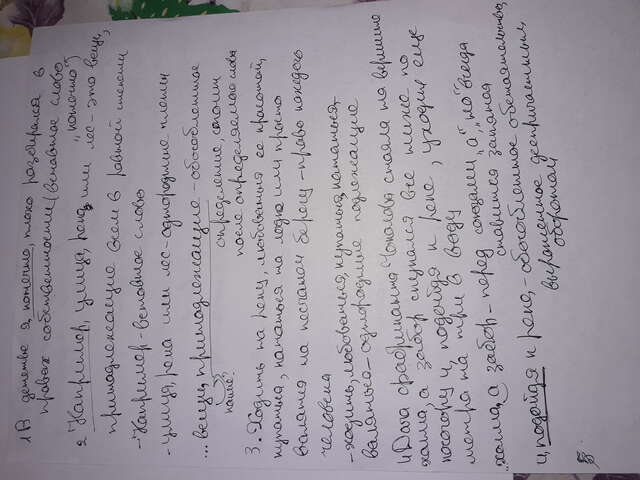 1 В детстве я, конечно, плохо разбирался в
правах собственности (вставное слово
"конечно")
2 "Например, улица, река, или лес - это вещи,
принадлежащие всем в равной степени
- "Например - вставное слово
- улица, река или лес - однородные члены
... вещи, принадлежащие - обособленное
какие? определение, стоит
после определяемого слова
3. Ходить на реку, любоваться её красотой,
купаться, кататься на лодке или просто
валяться на песчаном берегу - право каждого
человека
- ходить, любоваться, купаться, кататься,
валяться - однородные подлежащие
4 Дача фабриканта Чокалова стояла на вершине
холма, а забор спускался вниз по
косогору и, подойдя к реке, уходил ещё
метра на три в воду
"холма, а забор - перед союзами "а", "но" всегда
ставится запятая
и, подойдя к реке, - обособленное обстоятельство,
выраженное деепричастным
оборотом